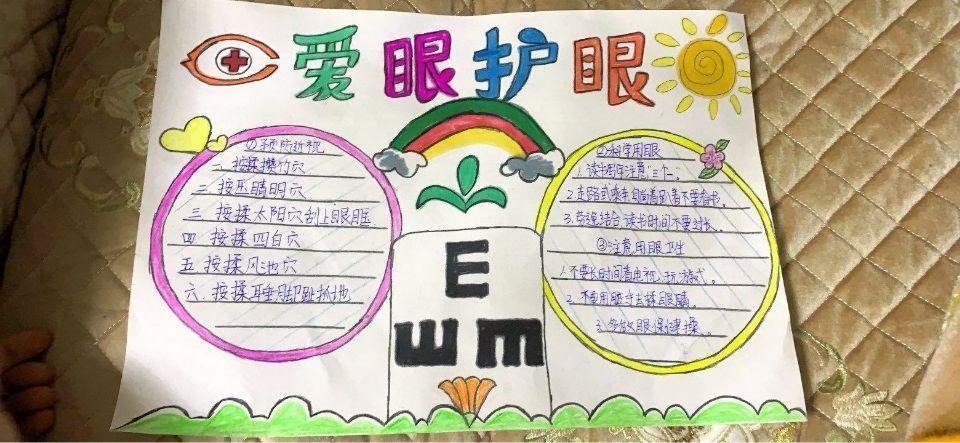 爱眼护眼
①预防近视
一 按揉攒竹穴
二 按压睛明穴
三 按揉太阳穴刮上眼眶
四 按揉四白穴
五 按揉风池穴
六 按揉耳垂脚趾抓地
②科学用眼
1. 读书写字注意"三个一"。
2. 走路或乘车时不要看书。
3. 劳逸结合 读书时间不要过长。
③注意用眼卫生
1. 不要长时间看电视、玩游戏。
2. 不要用脏手去揉眼睛。
3. 多做眼保健操。
E
ш m